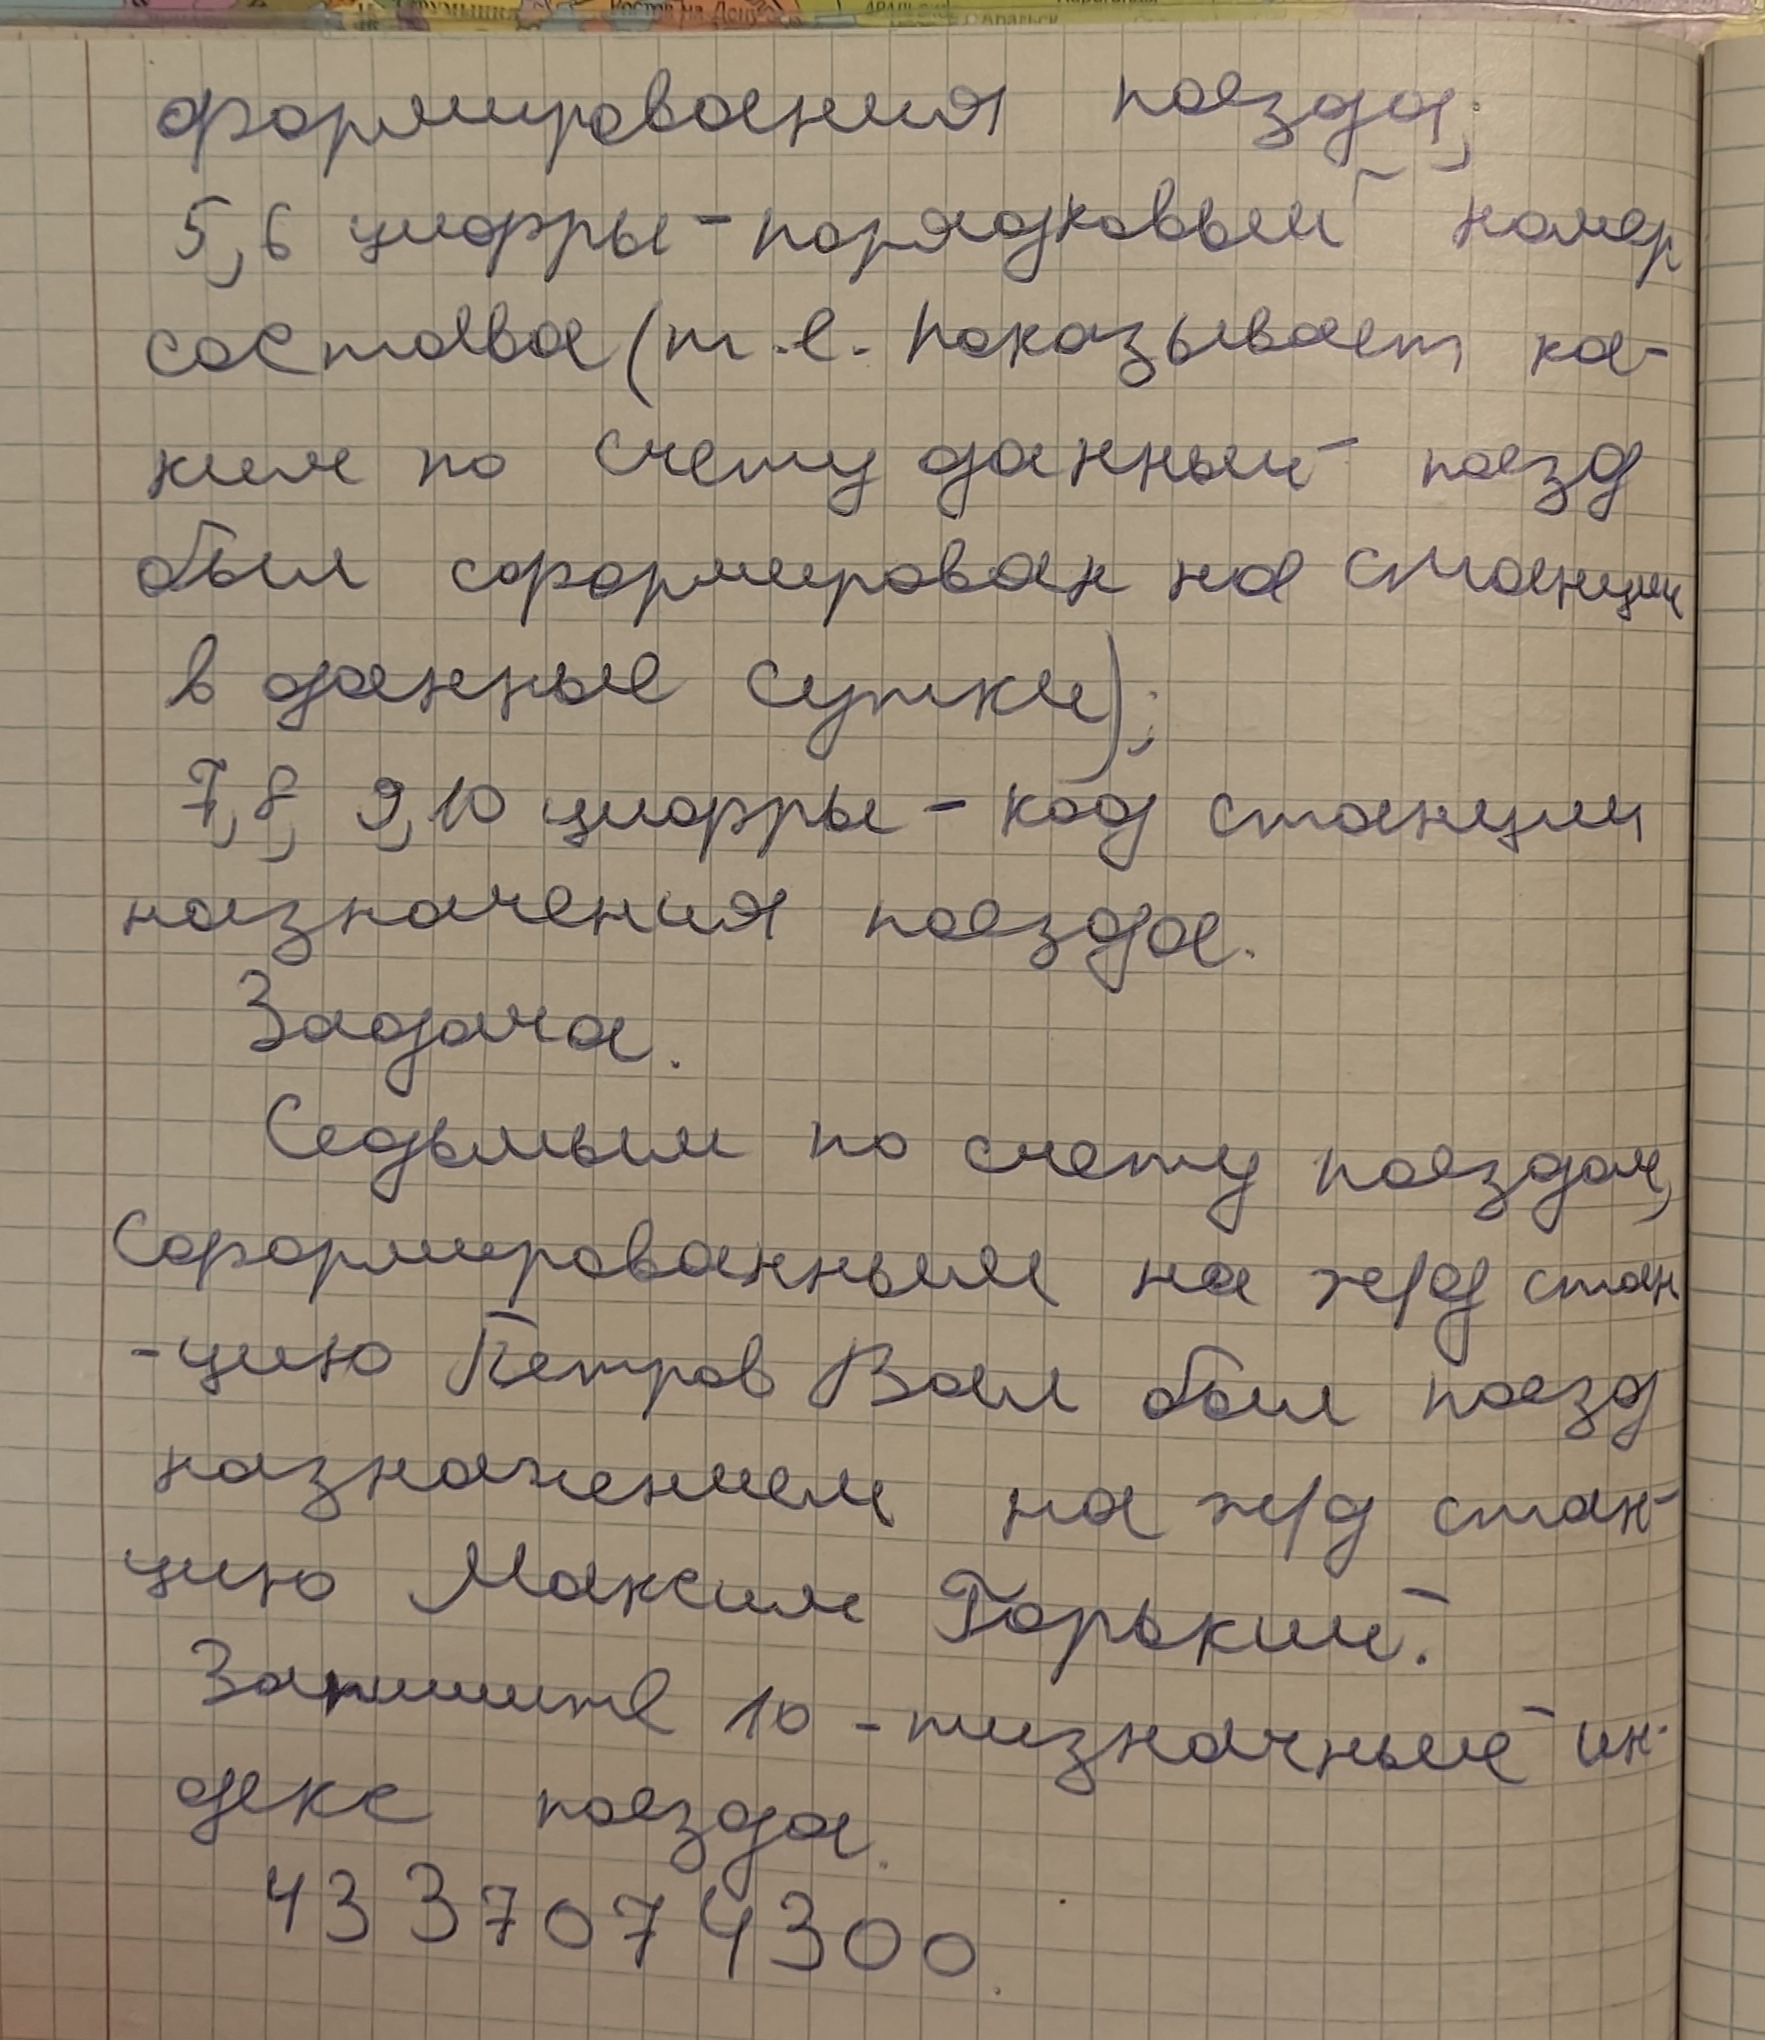 Ростов-на-Дону
формирования поезда;
5,6 цифры - порядковый номер
состава (т.е. показывает ка-
ким по счету данный поезд
был сформирован на станции
в данные сутки);
7,8, 9,10 цифры - код станции
назначения поезда.
Задача.
Седьмым по счету поездом,
сформированным на ж/д стан
-цию Петров Вал был поезд
назначением на ж/д стан-
цию Максим Горький.
Запишите 10-тизначный ин-
декс поезда.
4337074300.